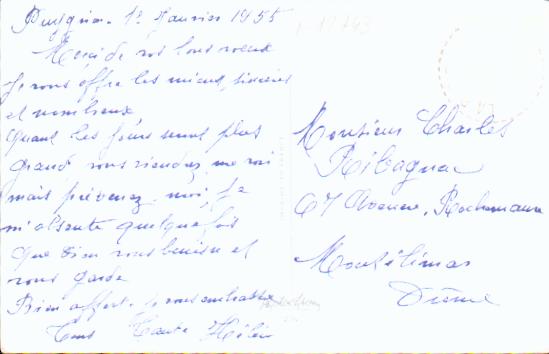 Puygiron. 1er Janvier 1955
Merci de vos bons voeux
Je vous offre les miens, sincères
et nombreux
Quand les jours seront plus
grands vous viendrez me voir
mais prévenez moi, Je
m'absente quelquefois
Que Dieu vous bénisse et
vous garde
Bien affect. je vous embrasse
Tous Tante Hélène
Monsieur Charles
Ribagnac
67 Avenue, Rochemaure
Montélimar
Drôme